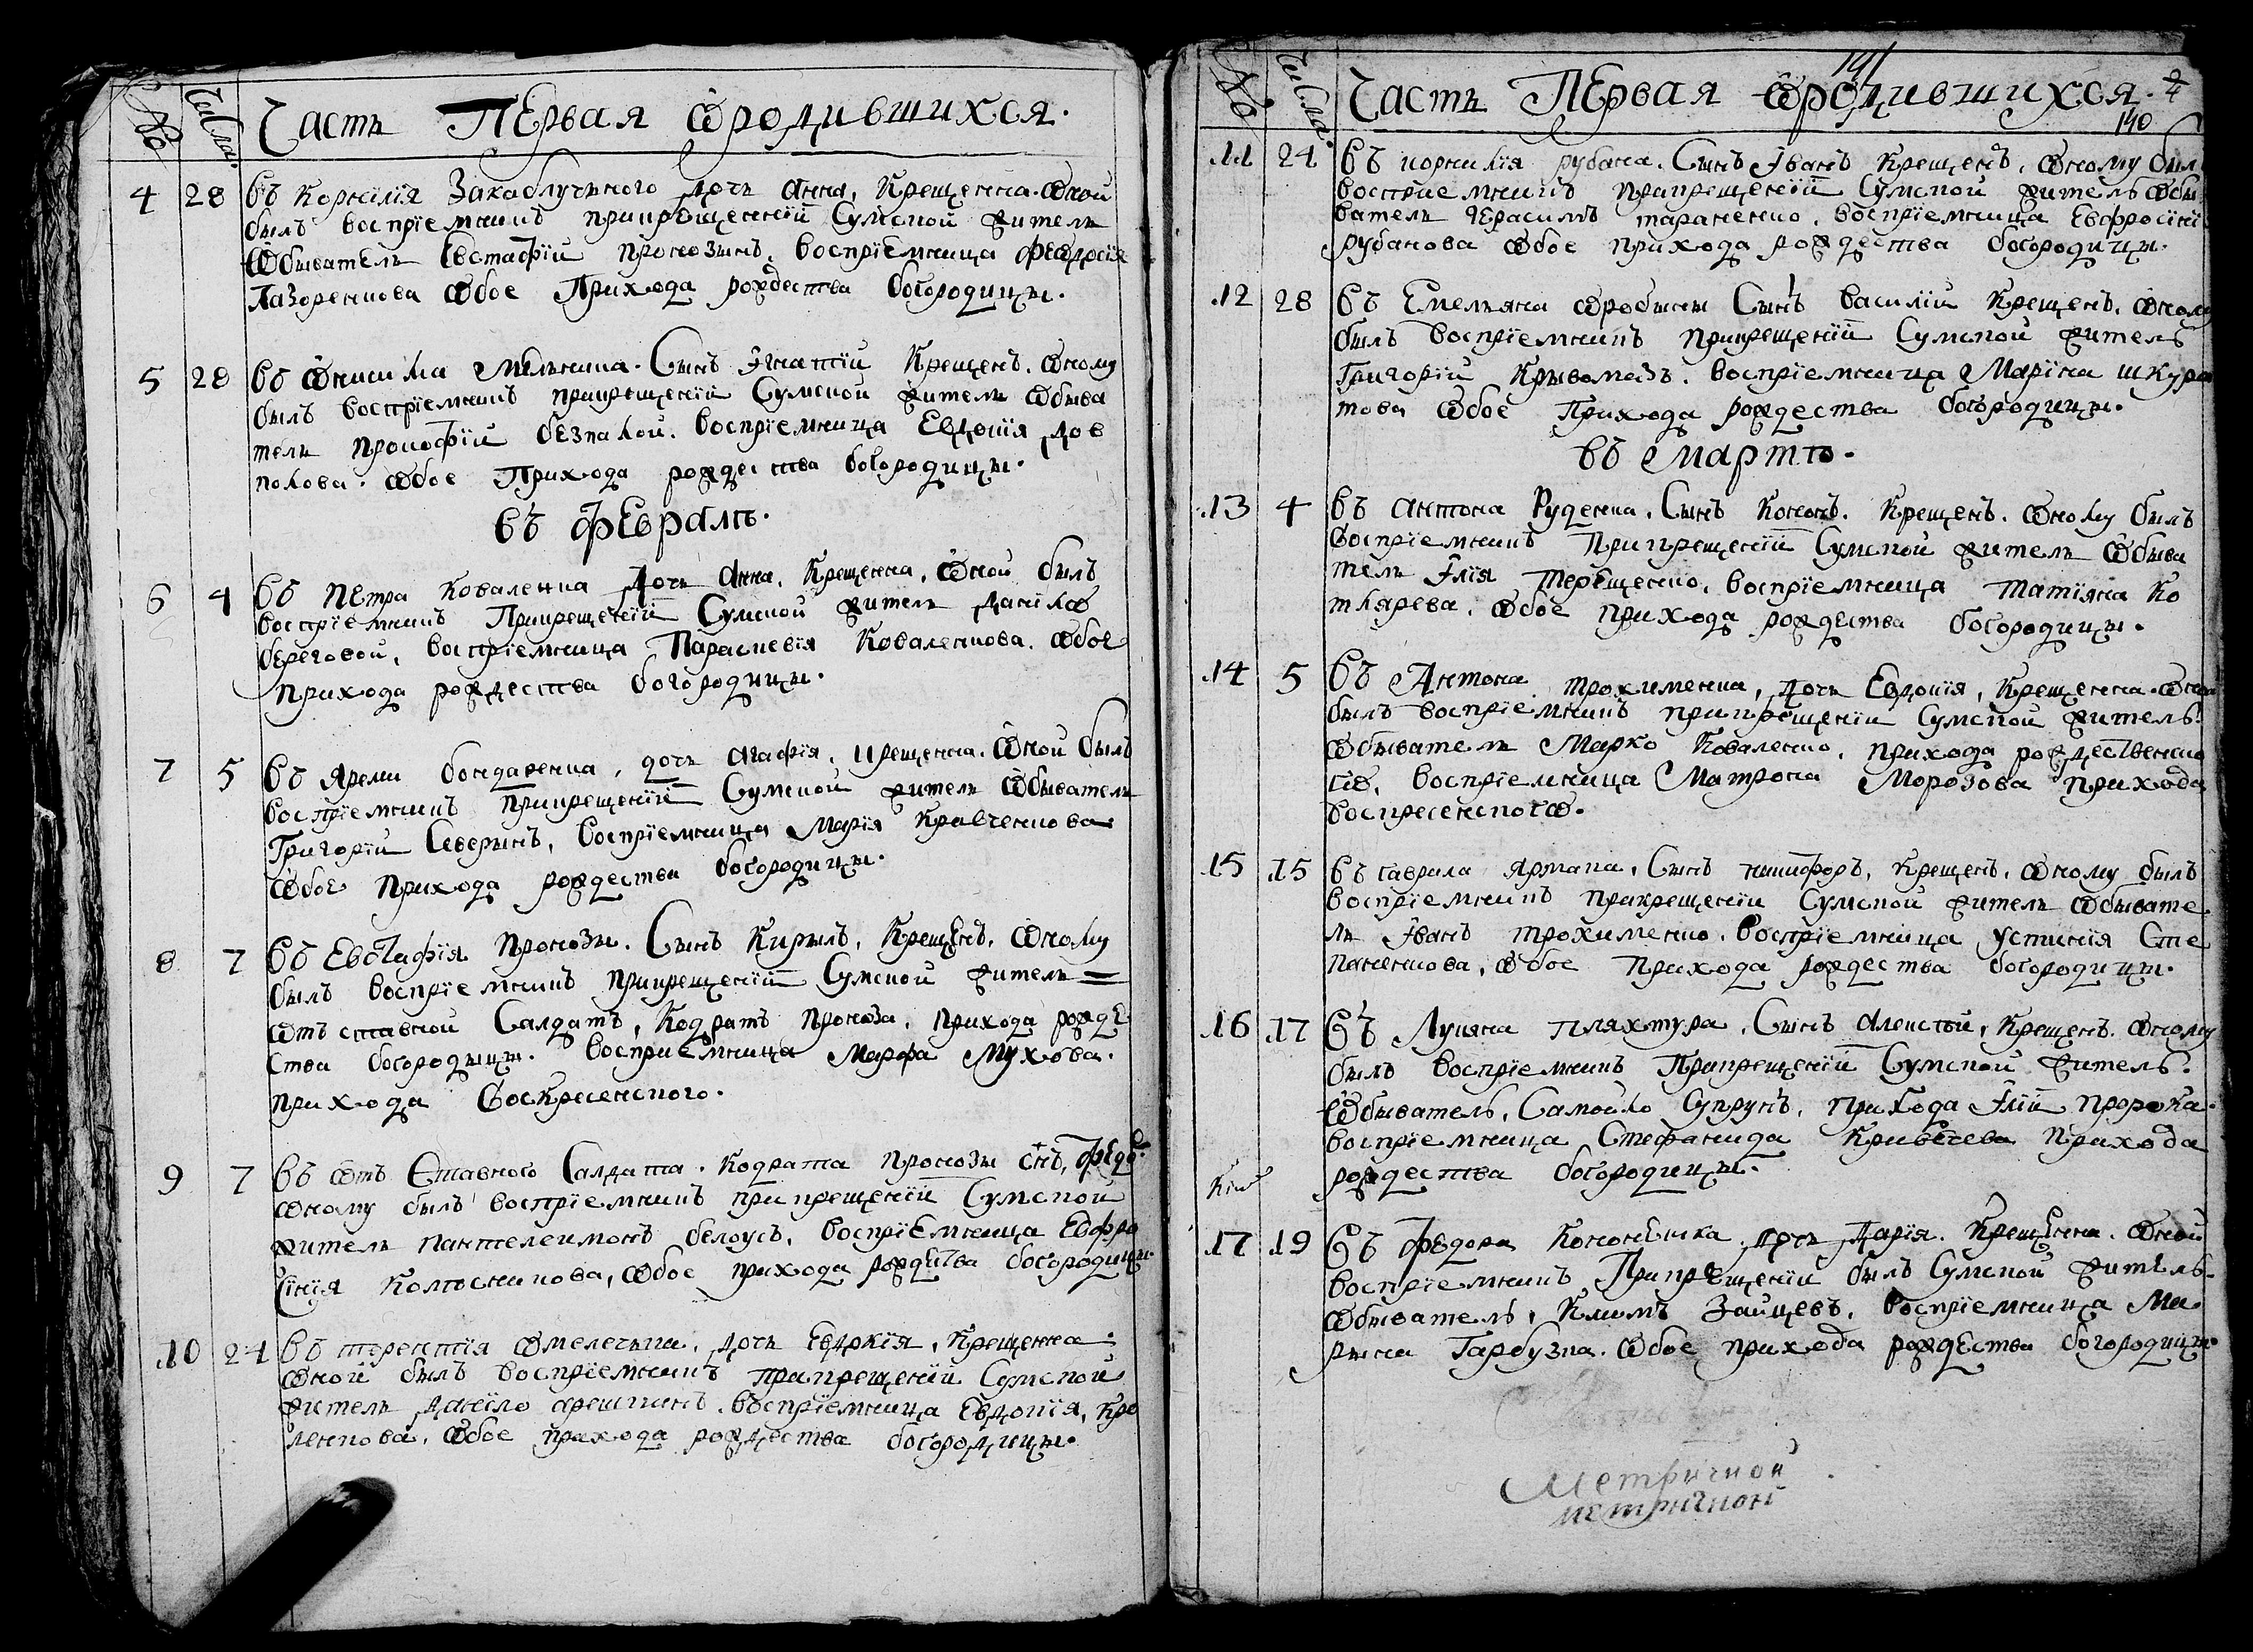 № Числа. Часть Первая ѡродившихся.
4 28 въ Корнилїя Закаблучьного дочь анна, Крещенна. ѡной
былъ воспрїемникъ прикрещенїй Сумской житель
ѡбыватель Евстафїй пронозынъ. воспрїемница феѡдосїя
Лазоренкова ѡбое Прихода рождества богородицы.
5 28 въ ѡниска мельника. Сынъ Игнатїй Крещенъ. ѡному
былъ воспрїемникъ прикрещенїй Сумской житель ѡбыва
тель прокофїй безпалой. воспрїемница Евдокїя дов
полова. ѡбое Прихода рождества богородицы.
въ февралѣ.
6 4 въ Петра Коваленка Дочь Анна, Крещенна, ѡной былъ
воспрїемникъ Прикрещенїй Сумской житель данїло
береговой, воспрїемница Параскевїя Коваленкова. ѡбое
прихода рождества богородицы.
7 5 въ Яреми бондаренка, дочь агафїя, крещенна. ѡной былъ
воспрїемникъ прикрещенїй Сумской житель ѡбыватель
Григорїй Северынъ, воспрїемница Марїя Кравченкова
ѡбое прихода рождества богородицы.
8 7 въ Евстафїя пронозы. Сынъ Кирылъ, Крещенъ, ѡному
былъ воспрїемникъ прикрещенїй Сумской житель =
ѡтъ ставной Салдатъ, Кодратъ проноза, прихода рожде
ства богородицы. воспрїемница марфа Мухова.
прихода Воскресенского.
9 7 въ ѡтъ Ставного Салдата. кодрата пронозы снъ, федо
ѡному былъ воспрїемникъ при крещенїй Сумской
житель пантелеимонъ белоусъ, воспрїемница Евфро
синїя Колѣсникова, ѡбое прихода рождества богородицы
10 24 въ терентїя ѡмелечька, дочь Евдокїя, Крещенна
ѡной былъ воспрїемникъ прикрещенїй Сумской
житель данїло орешкинъ. воспрїемница Евдокїя, Кро
ленкова, ѡбое прихода рождества богородицы.
141
№ Числа. Часть Первая ѡродившихся. 2
140
11 24 въ корнилїя рубана. Сынъ Іванъ Крещенъ, ѡному был
воспрїемникъ прикрещенїй Сумской житель ѡбы
ватель герасимъ тараненко, воспрїемница Евфросїнї
рубанова ѡбое прихода рождества богородицы.
12 28 въ Емельяна ѡробыны Сынъ василїй Крещенъ, ѡному
былъ воспрїемникъ прикрещенїй Сумской житель
Григорїй Крывомазъ. воспрїемница Марїна шкура
това ѡбое Прихода рождества богородицы.
въ мартѣ.
13 4 въ антона Руденка, Сынъ Кононъ, Крещенъ. ѡному былъ
воспрїемникъ Прикрещенїй Сумской житель ѡбыва
тель Ілїя терещенко, воспрїемница татїяна Ко
тлярева. ѡбое прихода рождества богородицы.
14 5 въ Антона трохименка, дочь Евдокїя, Крещенна. ѡной
былъ воспрїемникъ прикрещенїи Сумской житель
ѡбыватель Марко Коваленко, прихода рождественско
гѡ, воспрїемница Матрона Морозова прихода
воскресенскогѡ.
15 15 въ гаврила Ярмака, Сынъ никифоръ, Крещенъ, ѡному былъ
воспрїемникъ прикрещенїи Сумской житель ѡбывате
ль Іванъ трохименко. воспрїемница устинїя Сте
паненкова, ѡбое прихода рождества богородицы.
16 17 въ Лукяна пляхтура, Сынъ алексѣй, Крещенъ. ѡному
былъ воспрїемникъ Прикрещенїй Сумской житель
ѡбыватель, Самойло Супрунъ, прихода Ілїи пророка.
воспрїемница Стефанида прихода
рождества богородицы.
17 19 въ федора дочь Дарїя. Крещенна. ѡной
воспрїемникъ Прикрещенїй былъ Сумской житель
ѡбыватель, Климъ Зайцевъ. воспрїемница Ма
рына Гарбузна. ѡбое прихода рождества богородицы
Метричной
метричной